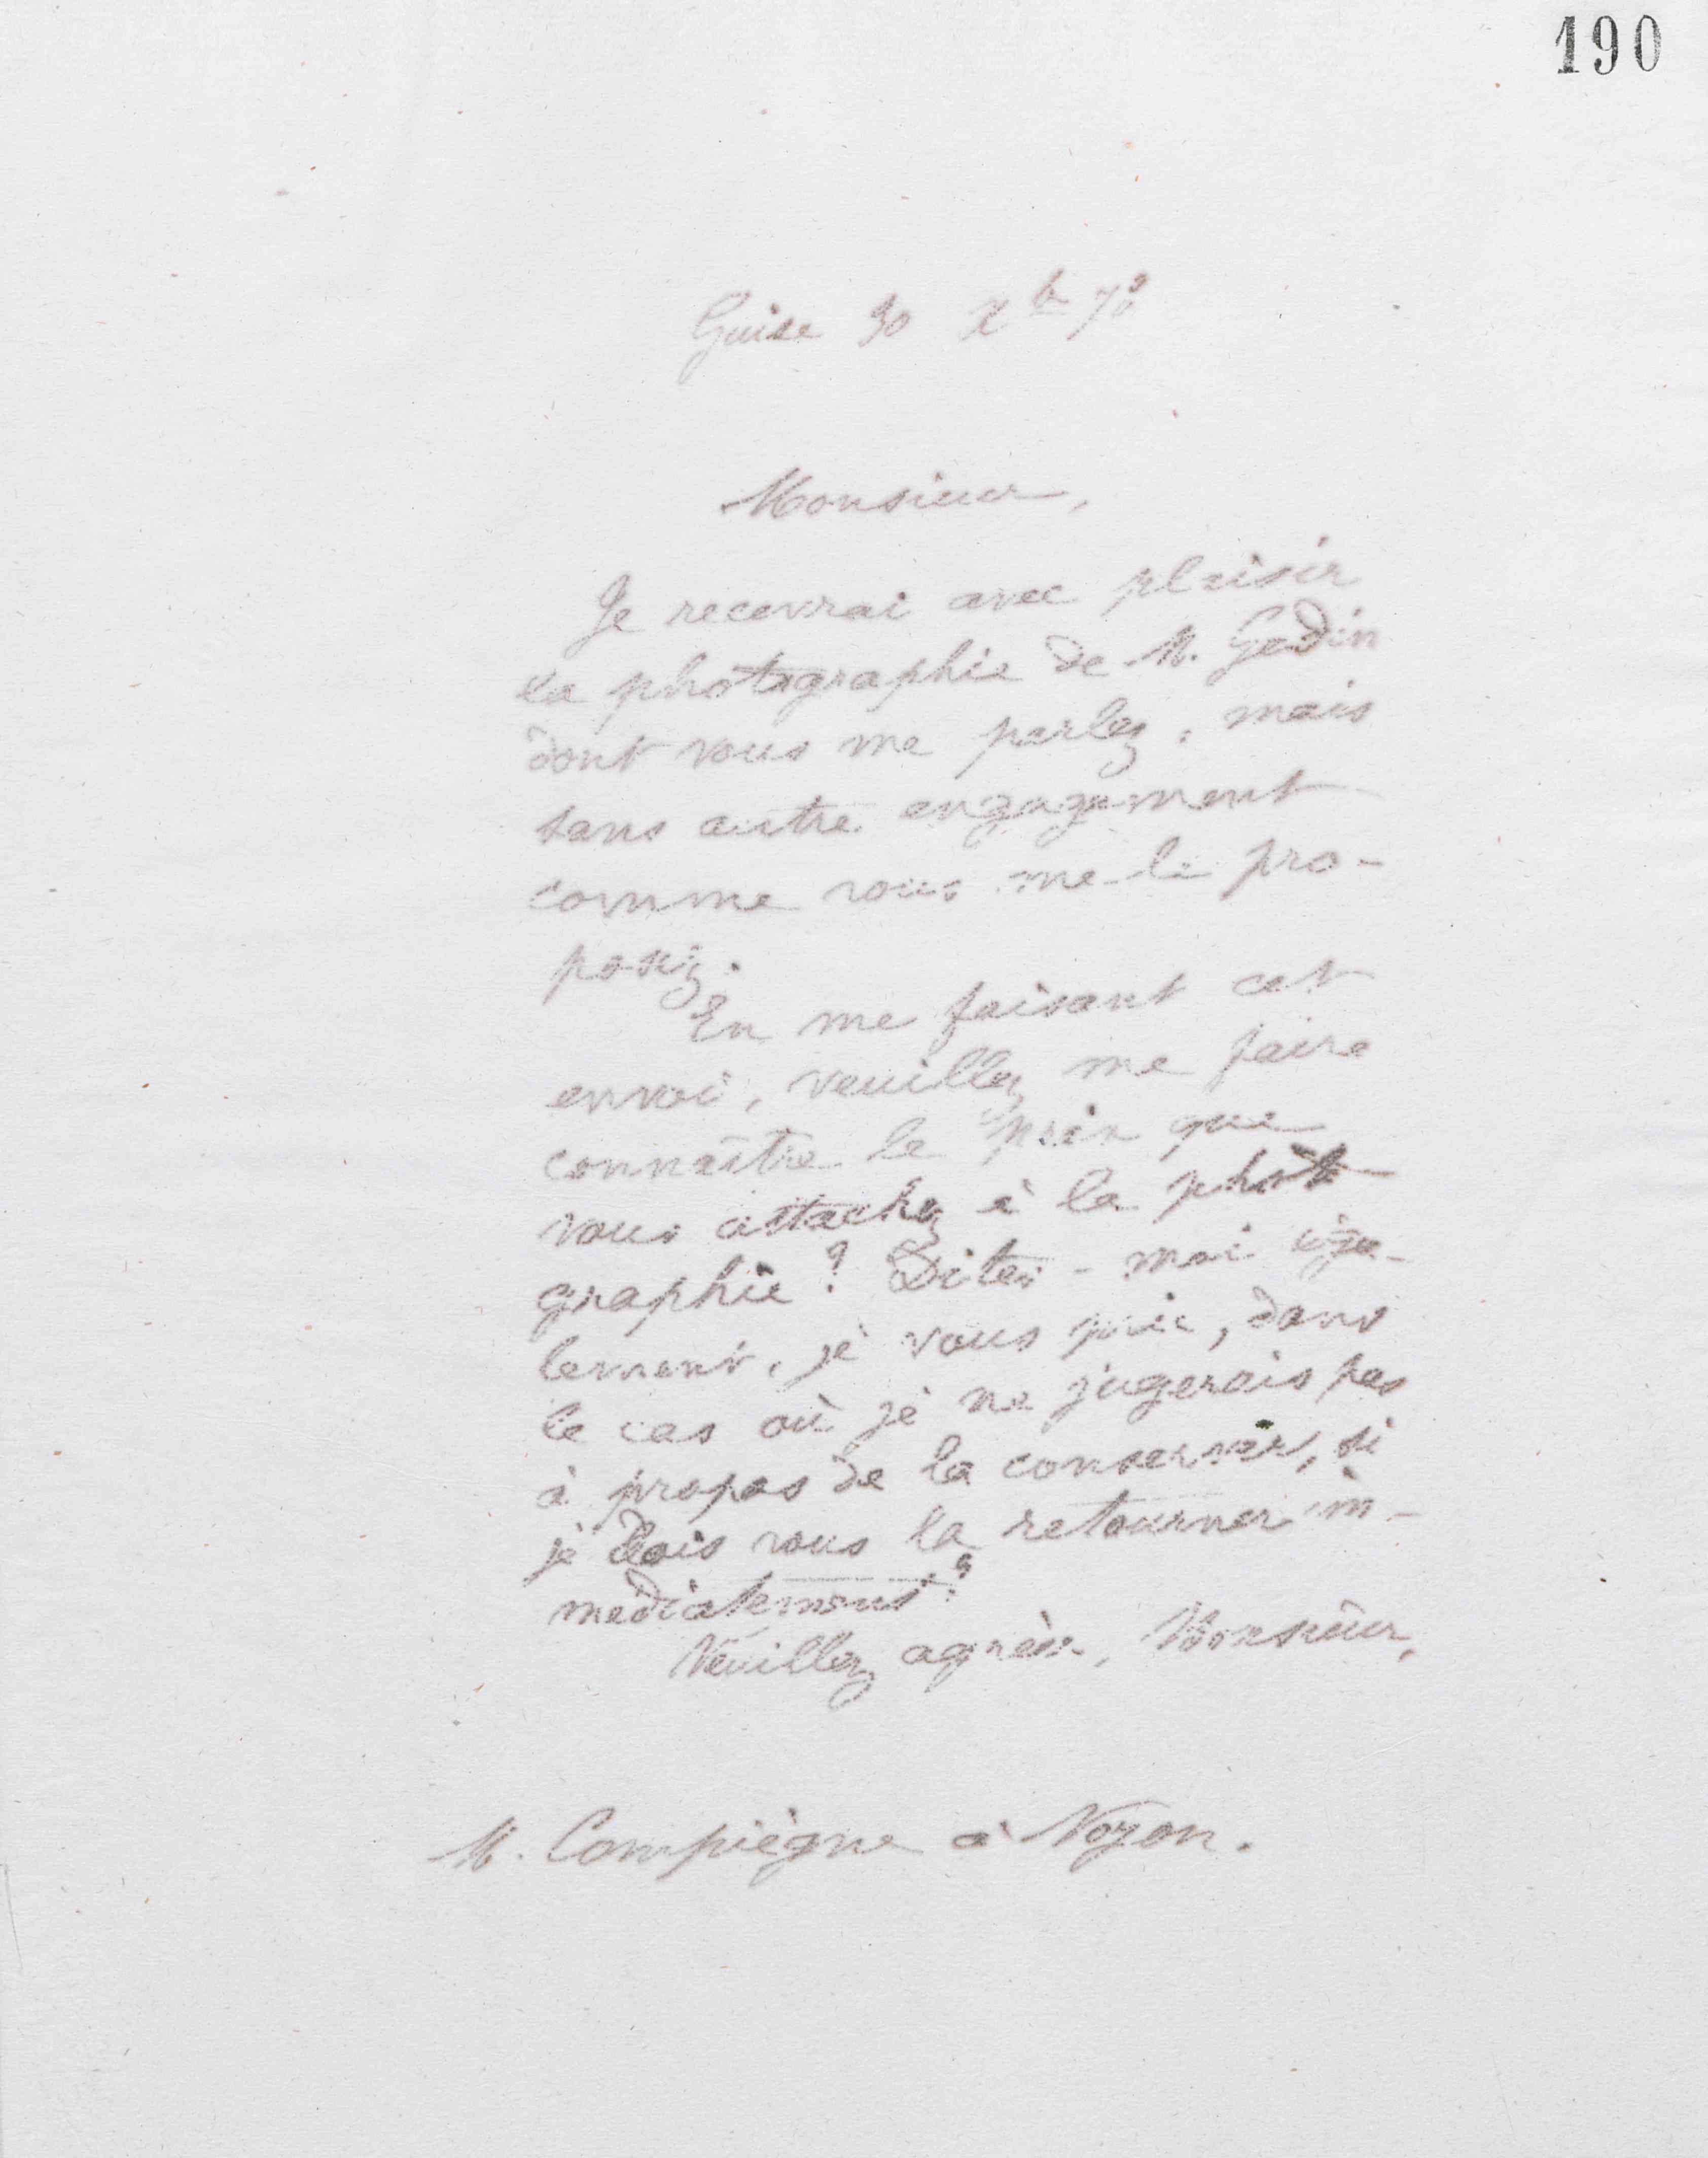 190
Guise 30 Xbre
Monsieur,
Je recevrai avec plaisir
la photographie de M. Godin
dont vous me parlez, mais
sans autre engagement
comme vous me le pro-
posez.
En me faisant cet
envoi, veuillez me faire
connaître le prix que
vous attachez à la photo
graphie? Dites-moi éga-
lement, je vous prie, dans
le cas où je ne jugerais pas
à propos de la conserver, si
je dois vous la retourner im-
médiatement?
Veuillez agréer, Monsieur,
M. Compiègne à Noyon.